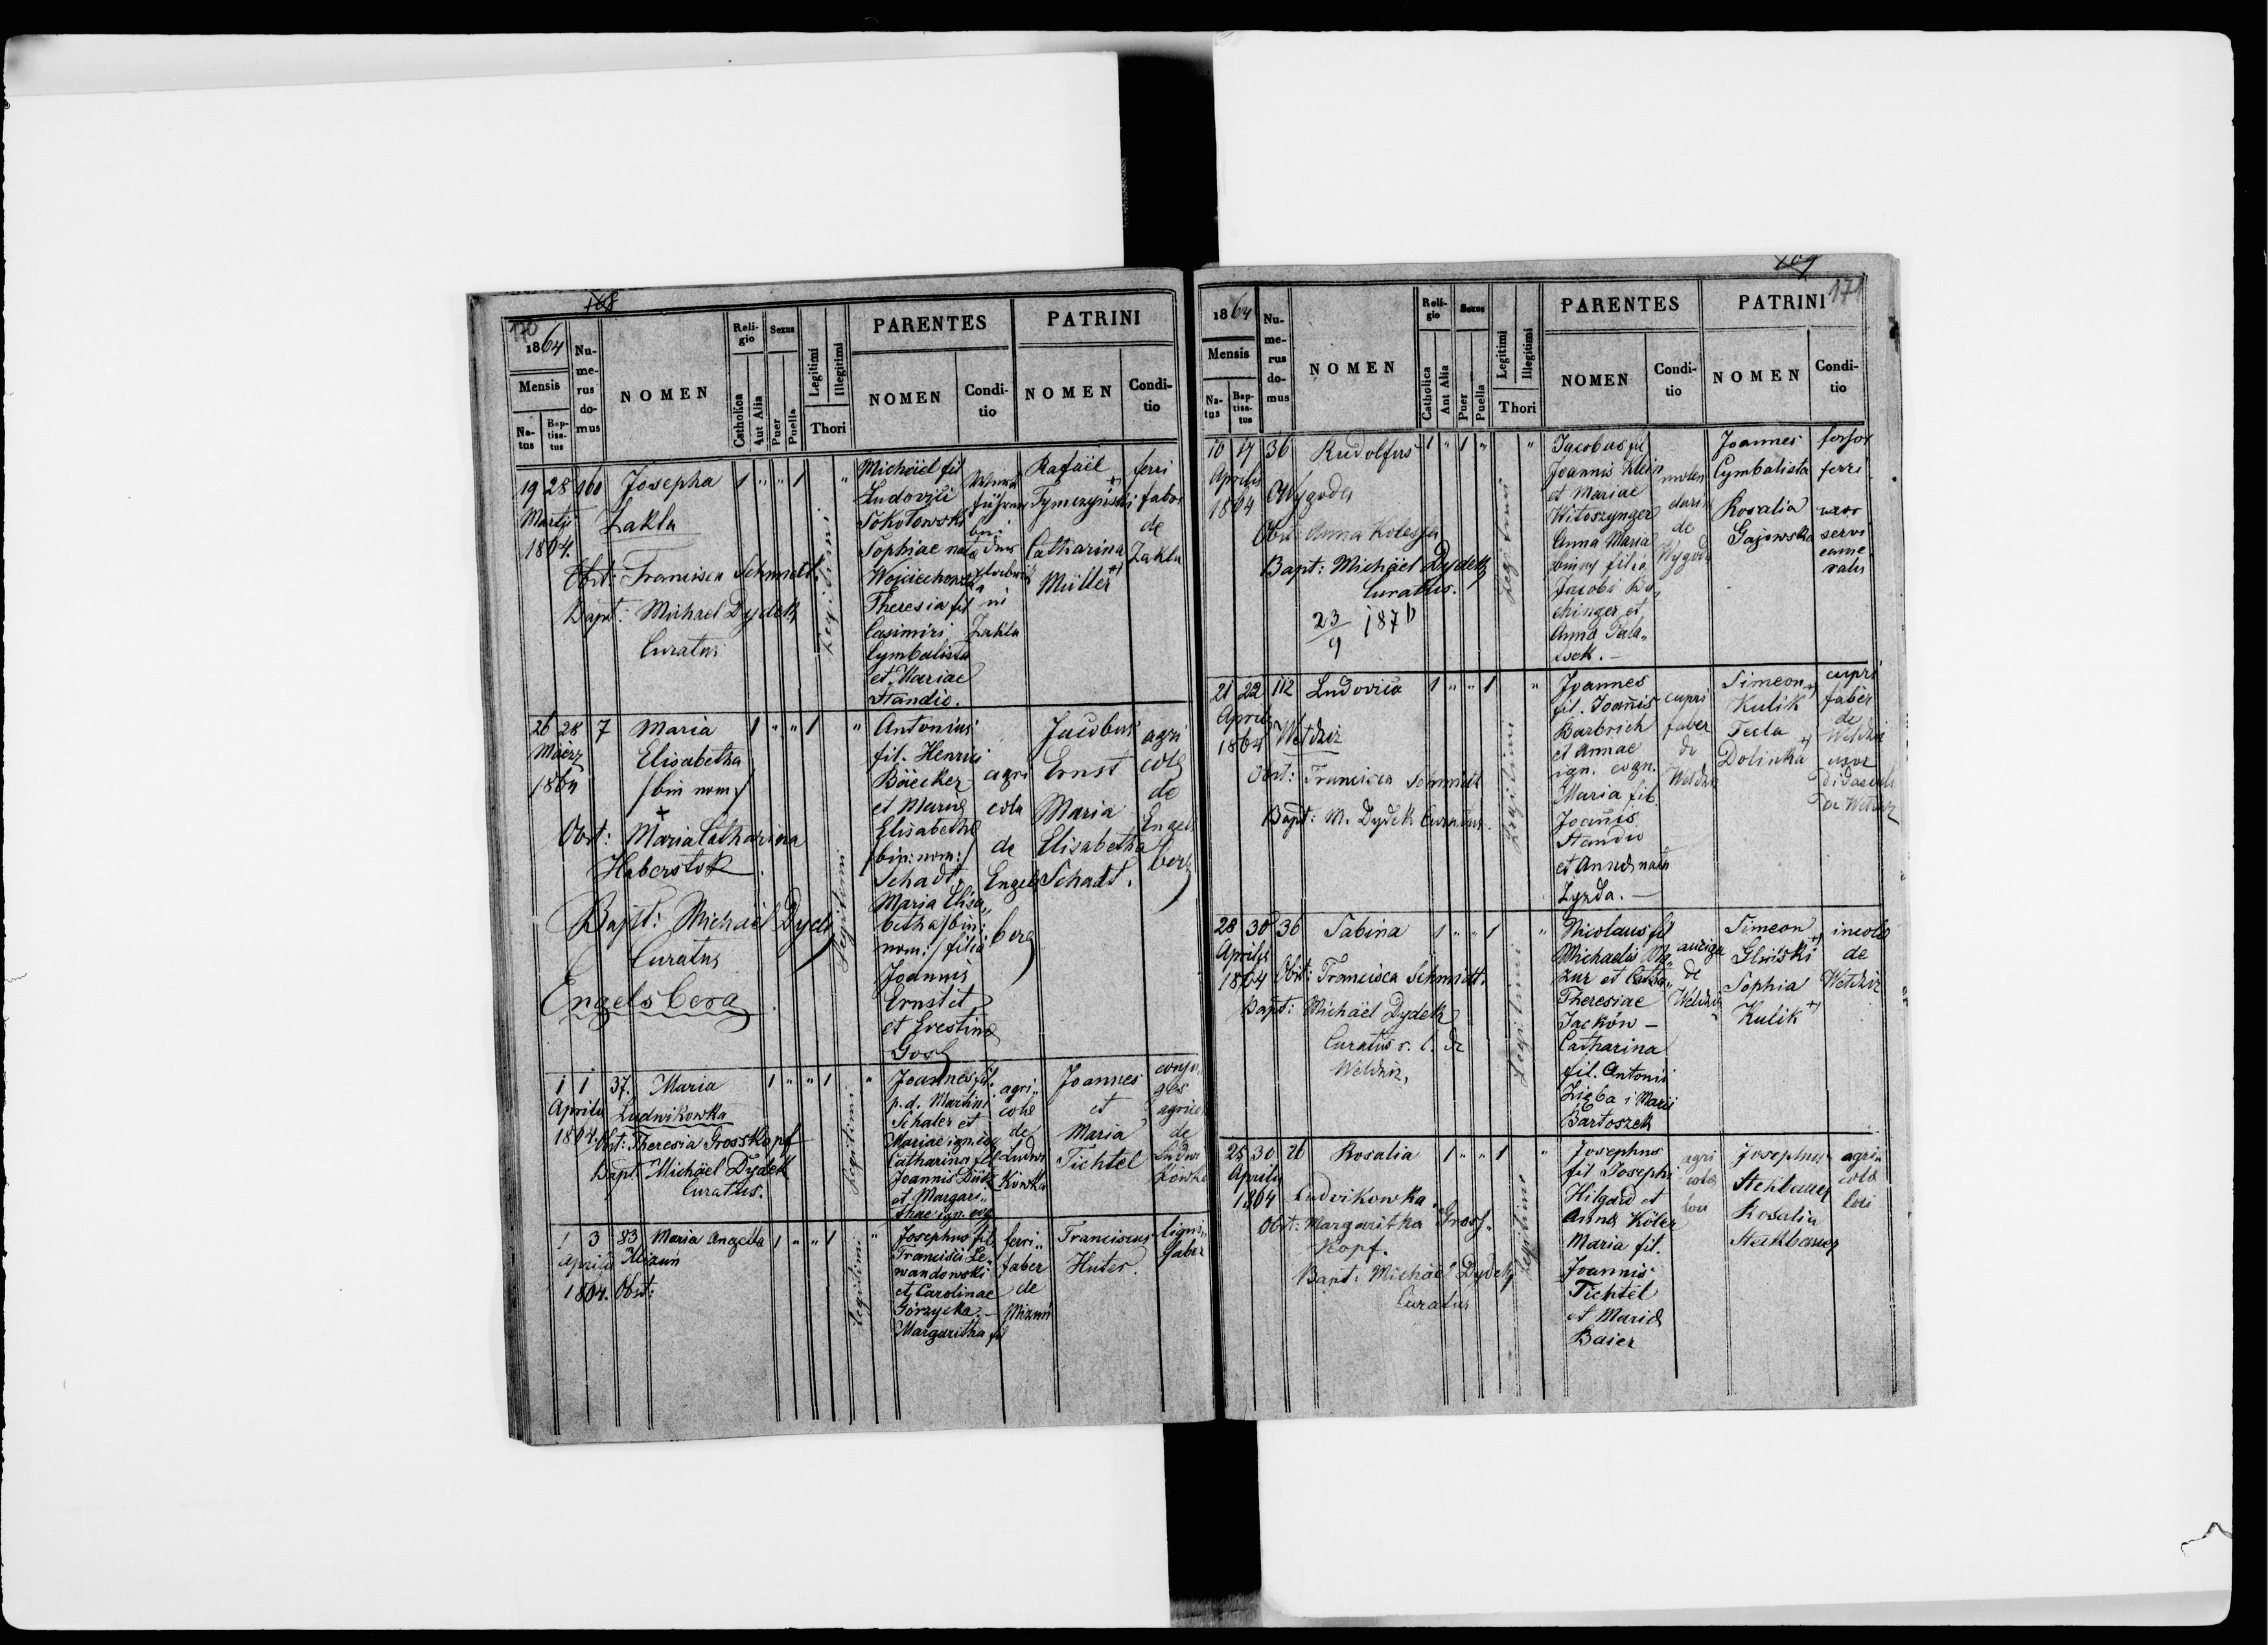 168
170
1864
Mensis
Na-
tus
Bap-
tisa-
tus
Nu-
me-
rus
do-
mus
NOMEN
Reli-
gio
Catholica
Aut Alia
Sexus
Puer
Puella
Legitimi
Illegitimi
Thori
PARENTES
NOMEN
Condi-
tio
PATRINI
NOMEN
Condi-
tio
19 28 160 Josepha 1 " " 1 "
Martii
1864.
Zakla
Obst: Francisca Schmidt.
Bapt: Michael Dydek
Curatus
Legitimi
Michäel fil
Ludovici
Sokołowski
Sophiae nata
Wojciechowska
Theresia fil
Casimiri
Cymbalista
et Mariae
Standio.
Zakla
Rafaël
Tymczyński
Catharina
Müller
ferri
faber
de
Zakla
26 28 7 Maria 1 " " 1 "
März
1864
Elisabetha
/bin nom:/
+
Obst: Maria Catharina
Haberstok
Bapt: Michäel Dydek
Curatus
Engelsberg
Legitimi
Antonius
fil. Henrici
Bäecker
et Mariæ
Elisabethæ
/bin: nom:/
Schadt.
Maria Elisa„
betha /bin:
nom:/ filia
Joannis
Ernst et
et Erestinæ
agri
cola
de
Engels
berg
Jacobus
Ernst
Maria
Elisabetha
Schadt.
agri
cola
de
Engels
berg
1 1 37. Maria 1 " " 1 "
Aprilis
1864.
Ludwikowka
Obst: Theresia Grosskopf
Bapt: Michäel Dydek
Curatus.
Legitimi
Joannes fil.
p.d. Martini
Schaler et
Mariae ign. cog
Catharina fil
Joannis
et Margari„
thae ign. cog
agri„
cola
de
Ludwi
kowka
Joannes
et
Maria
Tichtel
conju
ges
agricol
de
Ludwi
kówka
1 3 83 Maria Angella 1 " " 1 "
Aprilis
1864.
Mizuń
Obst:
Legitimi
Josephus fil
Francisci Le„
wandowski
et Carolinae
Górzycka. –
Margaritha fil
ferri„
faber
de
Mizuń
Franciscus
Huter.
ligni„
faber
169
171
1864
Mensis
Na-
tus
Bap-
tisa-
tus
Nu-
me-
rus
do-
mus
NOMEN
Reli-
gio
Catholica
Aut Alia
Sexus
Puer
Puella
Legitimi
Illegitimi
Thori
PARENTES
NOMEN
Condi-
tio
PATRINI
NOMEN
Condi-
tio
10 17 36 Rudolfus 1 " 1 " "
Aprilis
1864
Wygoda
Obst: Anna Kolessa
Bapt: Michäel Dydek
Curatus.
23
9
Legitimi
Jacobus fil
Joannis Klein
et Mariae
Witoszynger
Anna Maria
filia
Jacobi Bo„
chinger et
Anna Pala„
molen
darius
de
Wygoda
Joannes
Cymbalista
Rosalia
Gajowska
ferri
uxor
servi
came
ralis
21 22 112 Ludovica 1 " " 1 "
Aprilis
1864
Wełdziż
Obst: Francisca Schmidt
Bapt: M. Dydek Curatus.
Legitimi
Joannes
fil. Joannis
Barbrich
et Annae
ign. cogn.
Maria fil.
Joannis
Standio
et Annæ nata
Zyzda. –
cupri
faber
de
Wełdziż
Simeon
Kulik
Tecla
Dolinka
cupri
faber
de
Wełdziż
uxor
de Wełdziż
28 30 36 Sabina 1 " " 1 "
Aprilis
1864
Obst: Francisca Schmidt.
Bapt: Michäel Dydek
Curatus r. l. de
Wełdziż,
Legitimi
Nicolaus fil
Michaelis Ma„
zur et
Theresiae
Jacków –
Catharina
fil. Antonii
Zięba i Marii
Bartoszek
auriga
de
Wełdziż
Simeon
Gliński
Sophia
Kulik
incolæ
de
Wełdziż
25 30 26 Rosalia 1 " " 1 "
Aprilis
1864
Ludvikowka.
Obst: Margaritha Gross„
Kopf.
Bapt: Michäel Dydek
Curatus
Legitimi
Josephus
fil Josephi
Hilgard et
Anna Köler
Maria fil.
Joannis
Tichtel
et Mariæ
Baier
agri
cola
loci
Josephus
Stehbauer
Rosalia
Stehbauer
agri„
cola
loci